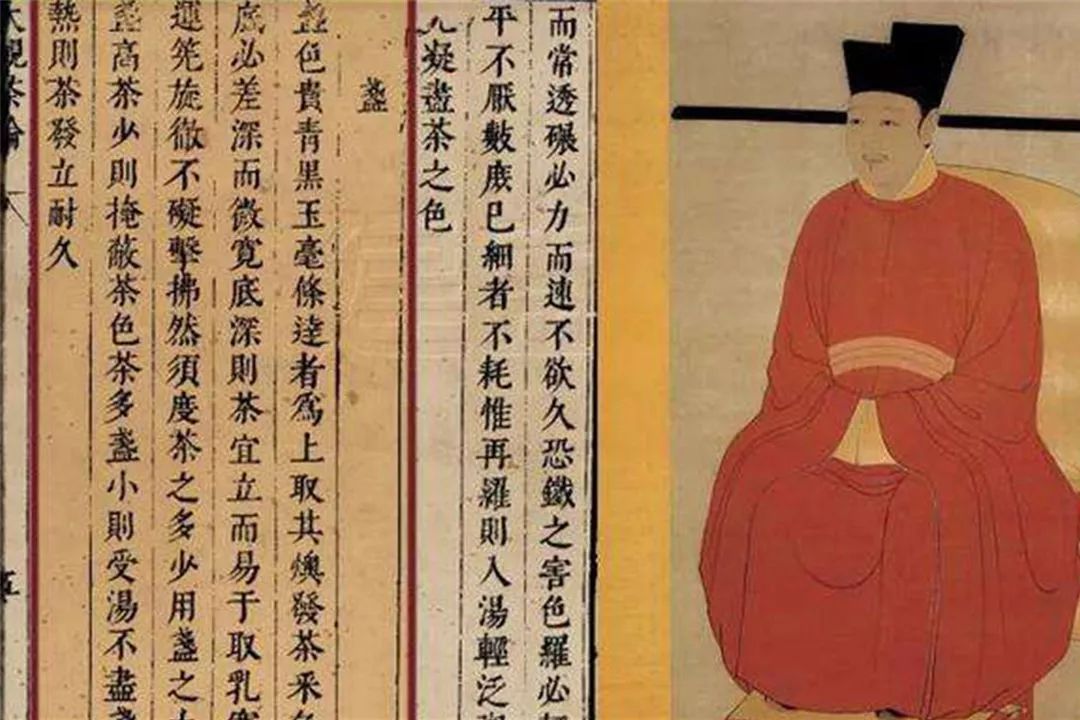 而常透碾必力而速不欲久恐鐵之害色羅必
平不厭數庻已細者不耗惟再羅則入湯輕泛
凝盡茶之色
盞
盞色貴青黑玉毫條逹者爲上取其燠發茶采
底必差深而微寛底深則茶宜立而易于取乳
運筅旋徹不礙擊拂然須度茶之多少用盞之
盞高茶少則掩蔽茶色茶多盞小則受湯不盡
熱則茶發立耐久
大觀茶論